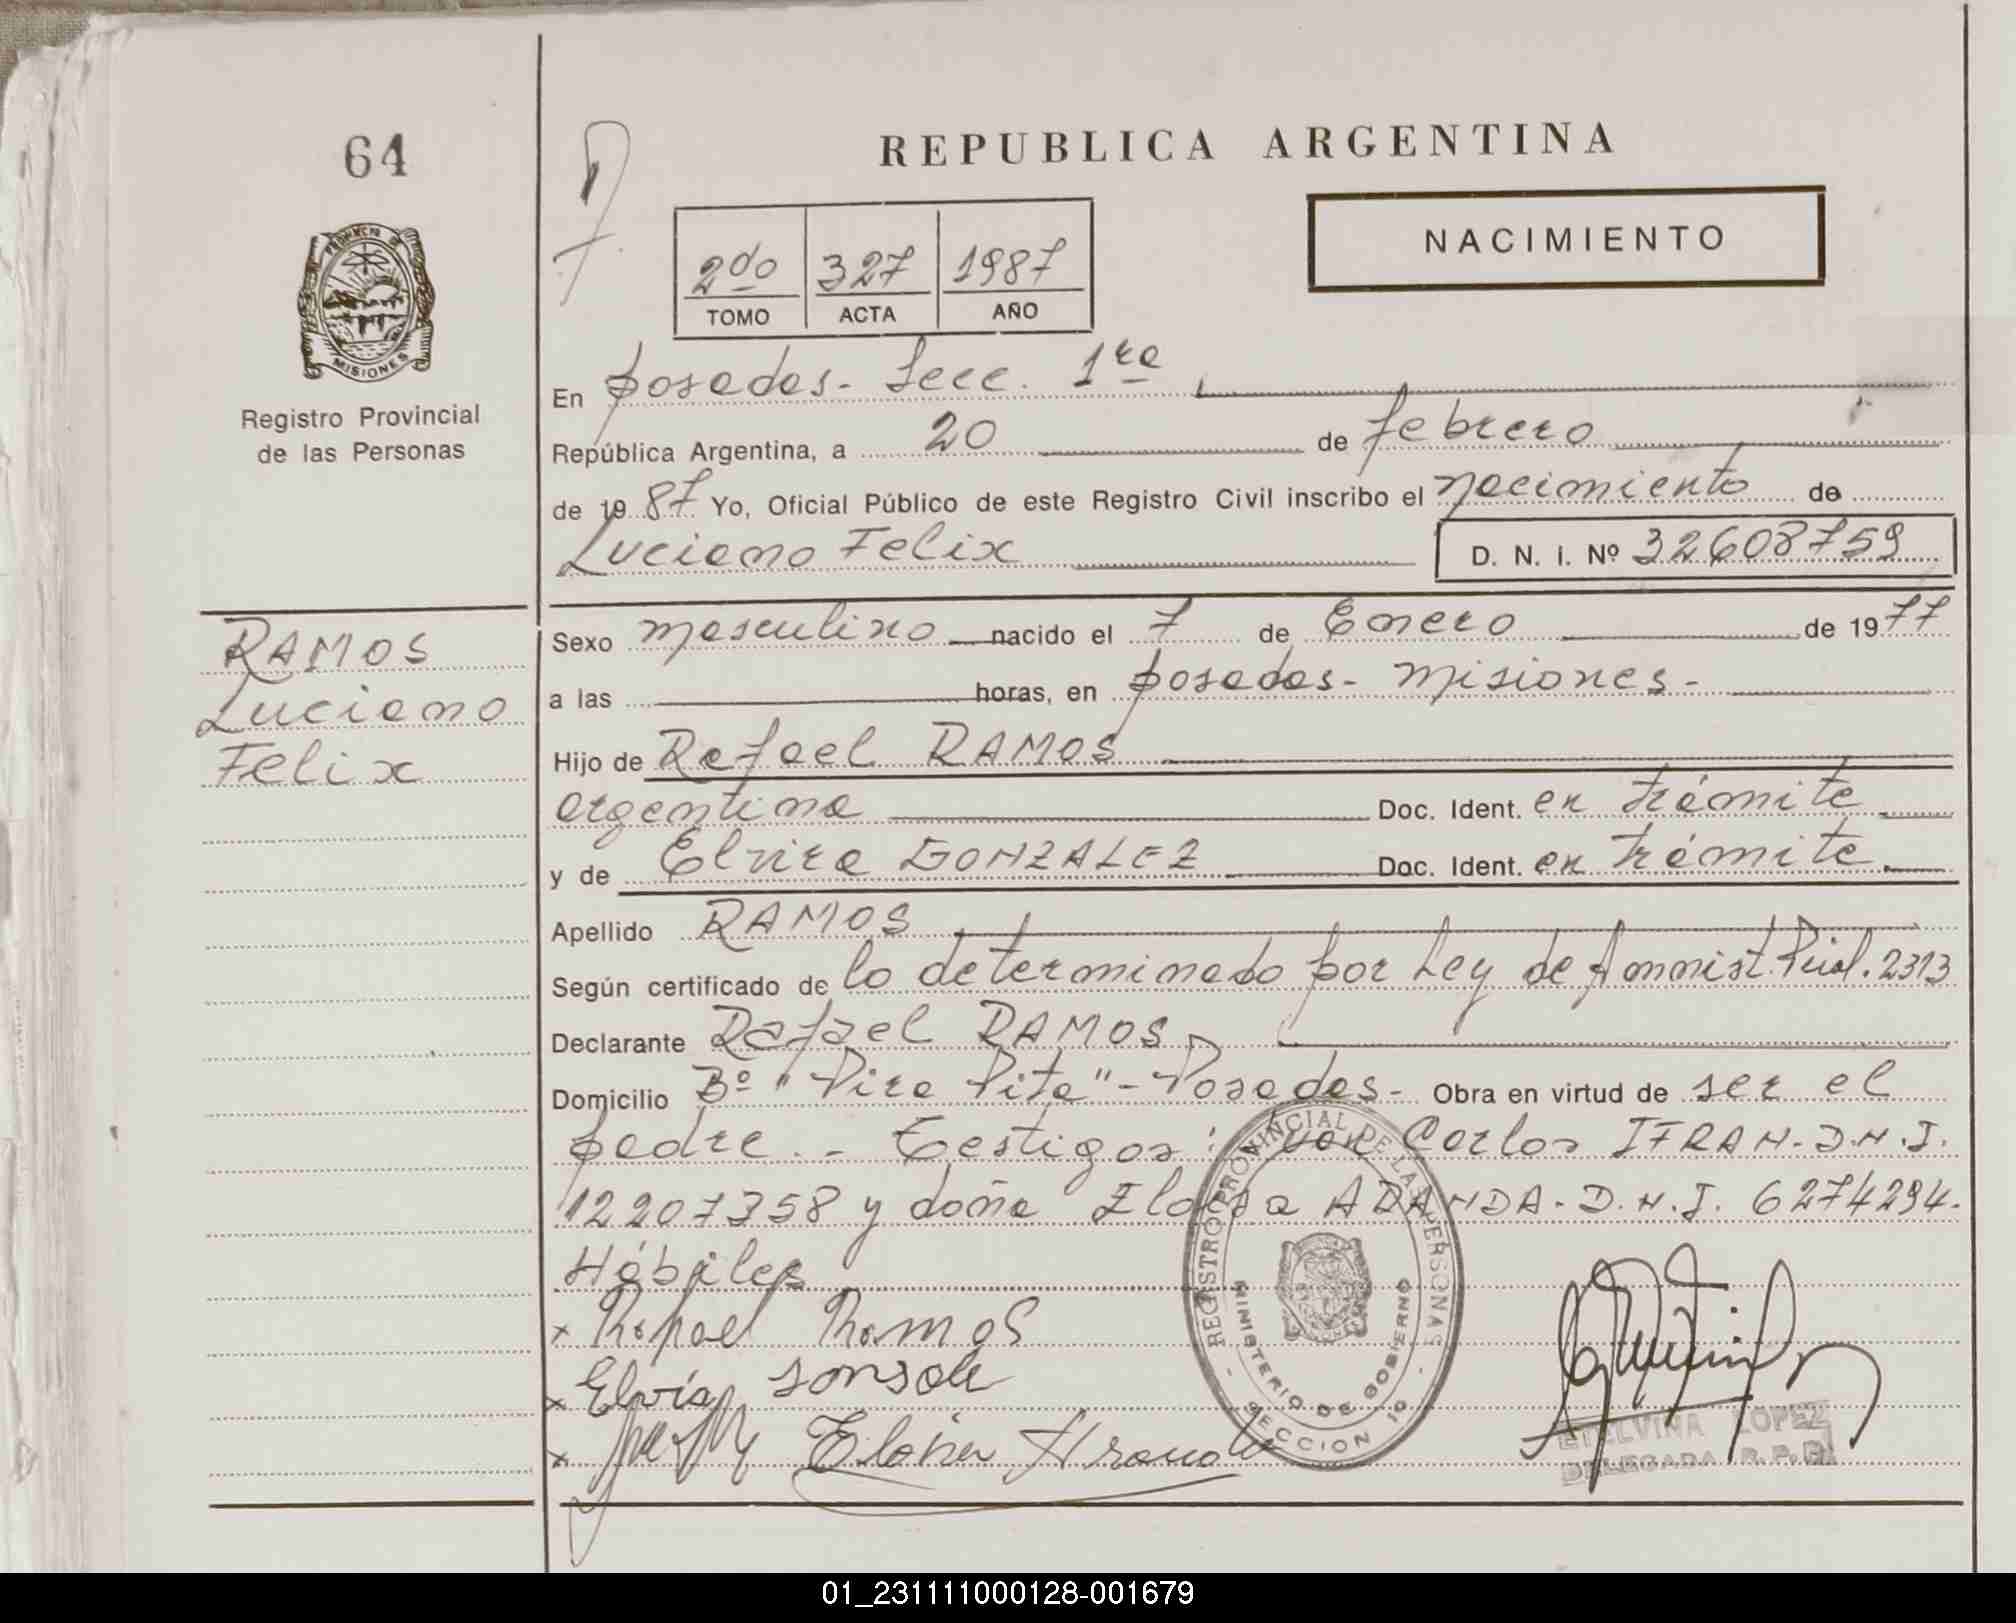 64
REPUBLICA ARGENTINA
NACIMIENTO
2do 327 1987
TOMO ACTA AÑO
PROVINCIA DE
MISIONES
Registro Provincial
de las Personas
En posadas - Secc. 1ra
República Argentina, a 20 de febrero
de 1987 Yo, Oficial Público de este Registro Civil inscribo el nacimiento de
Luciano Felix D. N. I. Nº 32608759
RAMOS
Luciano
Felix
Sexo masculino nacido el 7 de Enero de 1977
a las horas, en posadas - misiones -
Hijo de Rafael RAMOS
argentina Doc. Ident. en trámite
y de Elvira GONZALEZ Doc. Ident. en trámite.
Apellido RAMOS
Según certificado de lo determinado por Ley de Amnist. Pcial. 2313
Declarante Rafael RAMOS
Domicilio Bº "Pira Pita" - Posadas - Obra en virtud de ser el
padre. - Testigos: don Carlos IFRAN - D.N.I.
12207358 y doña Eloisa ARANDA - D.N.I. 6274294.
Hábiles
x Rafael Ramos
x Elvira
x
REGISTRO PROVINCIAL DE LAS PERSONAS
MINISTERIO DE GOBIERNO
SECCION 1º
ETELVINA LOPEZ
DELEGADA R. P. P.
01_231111000128-001679